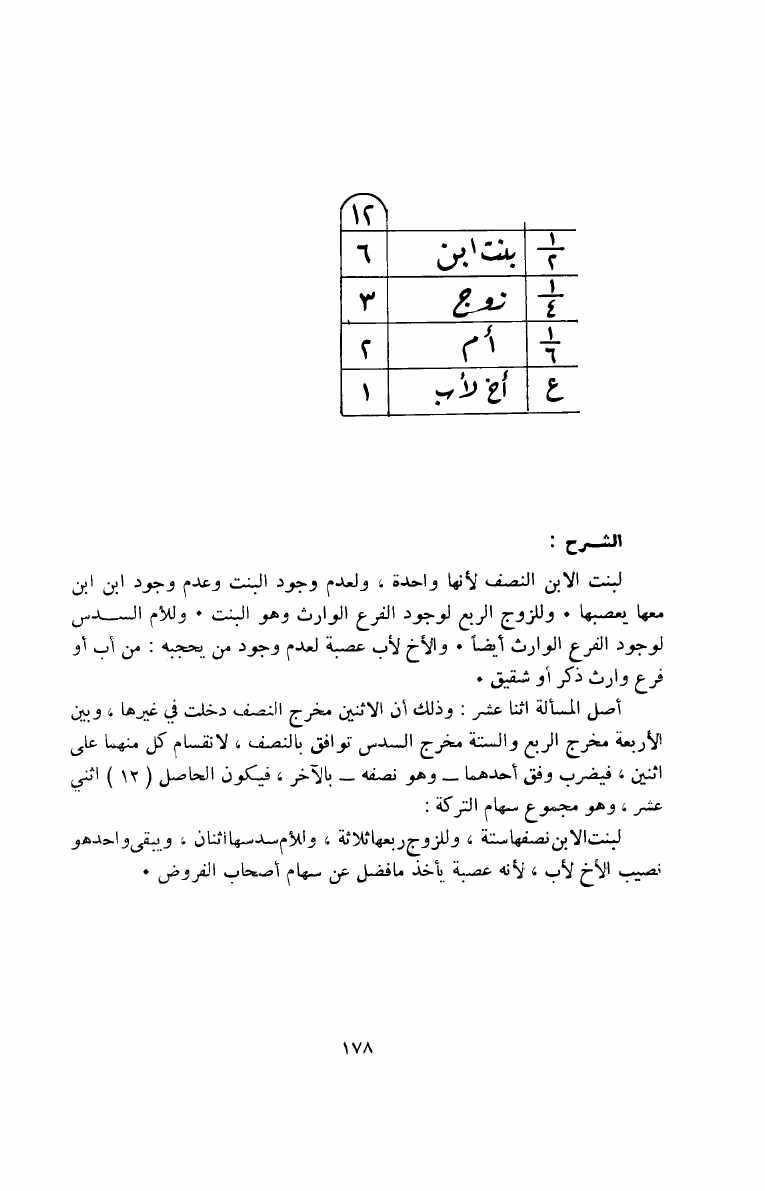 ١٢
١/٢ بنت ابن ٦
١/٤ زوج ٣
١/٦ أم ٢
ع أخ لأب ١
الشـرح :
لبنت الابن النصف لأنها واحدة ، ولعدم وجود البنت وعدم وجود ابن ابن
معها يعصبها • وللزوج الربع لوجود الفرع الوارث وهو البنت • وللأم الســدس
لوجود الفرع الوارث أيضاً • والأخ لأب عصبة لعدم وجود من يحجبه : من أب أو
فرع وارث ذكر أو شقيق •
أصل المسألة اثنا عشر : وذلك أن الاثنين مخرج النصف دخلت في غيرها ، وبين
الأربعة مخرج الربع والستة مخرج السدس توافق بالنصف ، لانقسام كل منهما على
اثنين ، فيضرب وفق أحدهما ــ وهو نصفه ــ بالآخر ، فيكون الحاصل ( ١٢ ) اثني
عشر ، وهو مجموع سهام التركة :
لبنت الابن نصفها ستة ، وللزوج ربعها ثلاثة ، وللأم سدسها اثنان ، ويبقى واحد هو
نصيب الأخ لأب ، لأنه عصبة يأخذ مافضل عن سهام أصحاب الفروض •
١٧٨